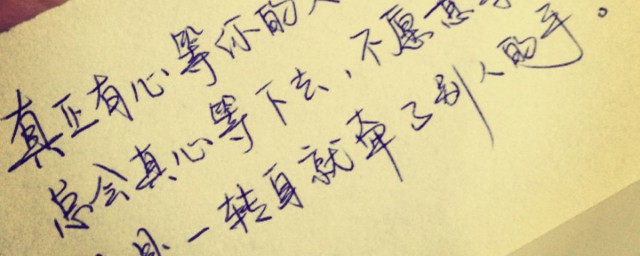 真正有心等你的人
总会真心等下去，不愿意等
一转身就牵了别人的手。